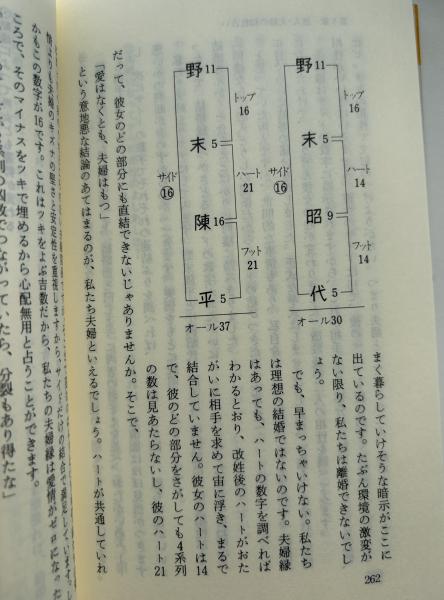 野11
末5
昭9
代5
トップ
16
ハート
14
フット
14
サイド
⑯
オール30
野11
末5
陳16
平5
トップ
16
ハート
21
フット
21
サイド
⑯
オール37
まく暮らしていけそうな暗示がここに
出ているのです。たぶん環境の激変が
ない限り、私たちは離婚できないでし
ょう。
でも、早まっちゃいけない。私たち
は理想の結婚ではないのです。夫婦縁
はあっても、ハートの数字を調べれば
わかるとおり、改姓後のハートがおた
がいに相手を求めて宙に浮き、まるで
結合していません。彼女のハートは14
で、彼のどの部分をさがしても4系列
の数は見あたらないし、彼のハート21
だって、彼女のどの部分にも直結できないじゃありませんか。そこで、
「愛はなくとも、夫婦はもつ」
という意地悪な結論のあてはまるのが、私たち夫婦といえるでしょう。ハートが共通していれ
情よりも夫婦のキズナの堅さと安定性を重視しますから、サイドだけの結合で満足しています。し
かもこの数字が16です。これはツキをよぶ吉数だから、私たちの夫婦縁は愛情がゼロになった
ころで、そのマイナスをツキで埋めるから心配無用と占うことができます。
系列の凶数でつながっていたら、分裂もあり得たな」
262